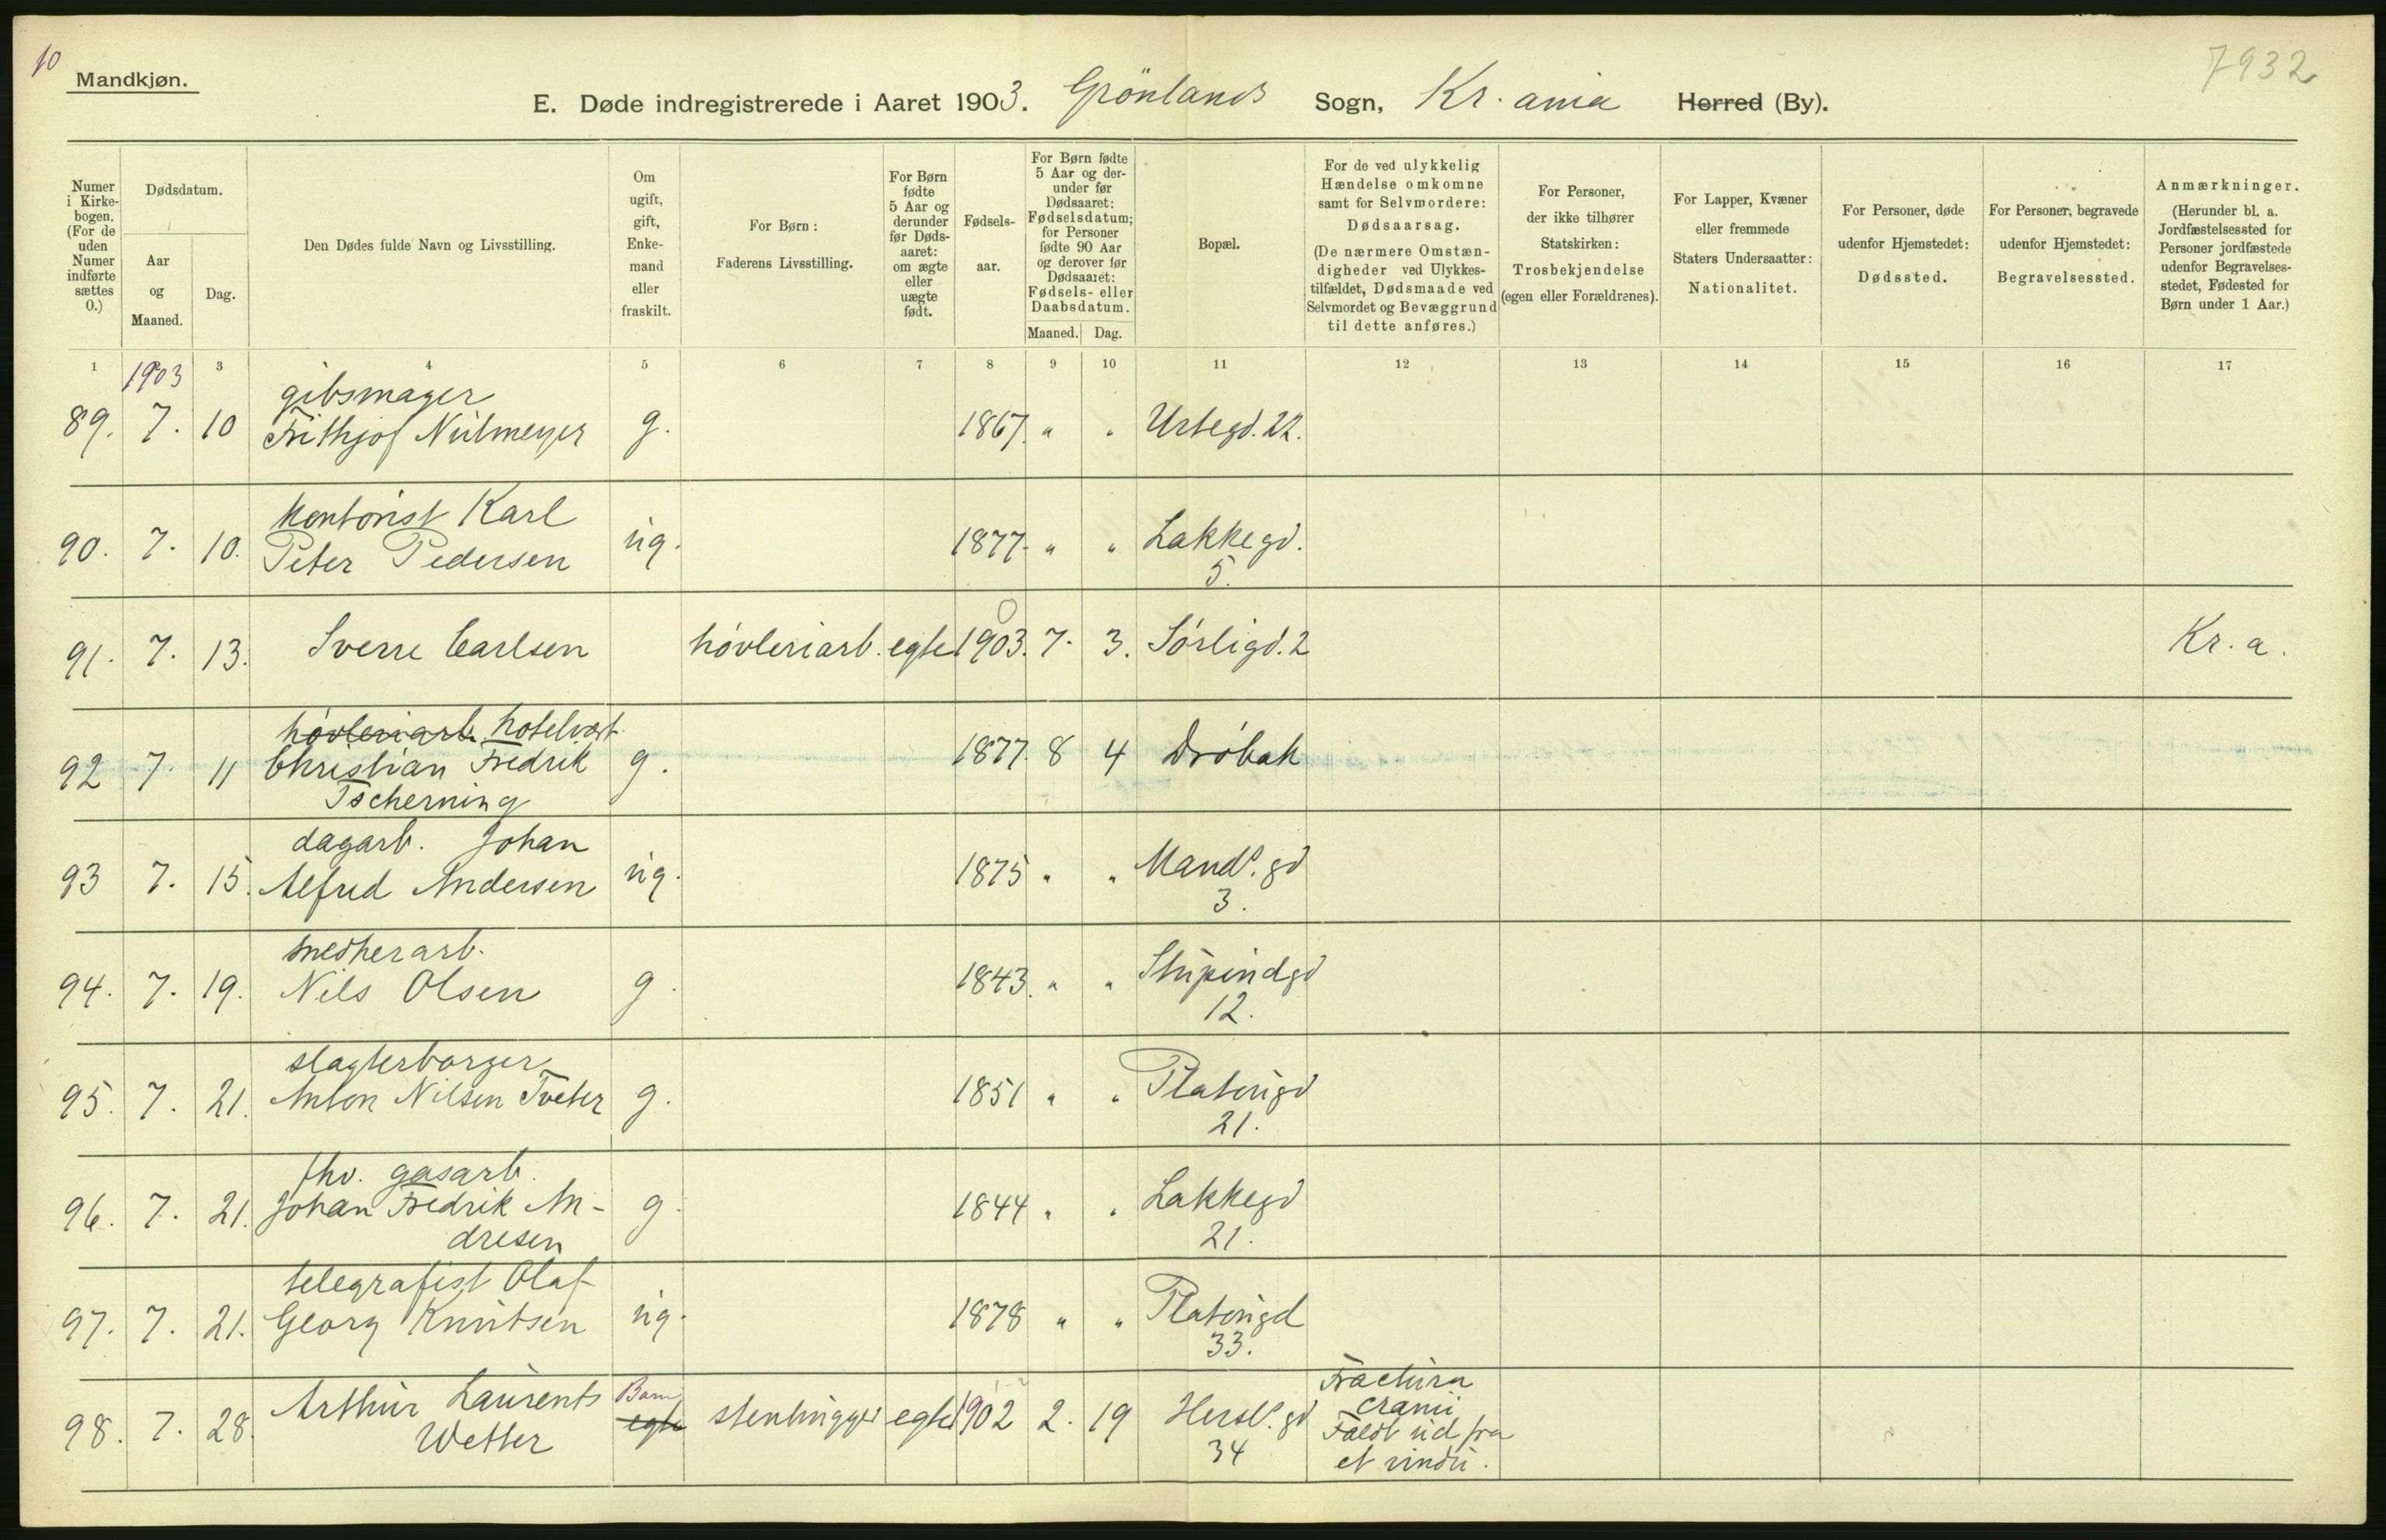 10
Mandkjøn.
7932
E. Døde indregistrerede i Aaret 1903. Grönlands Sogn, Kr. ania Herred (By).
Numer i Kirke-bogen. (For de uden Numer indførte sættes 0.)
Dødsdatum.
Aar og Maaned.
Dag.
Den Dødes fulde Navn og Livsstilling.
Om ugift, gift, Enke-mand eller fraskilt.
For Børn: Faderens Livsstilling.
For Børn fødte 5 Aar og derunder før Døds-aaret: om ægte eller uægte født.
Fødsels-aar.
For Børn fødte 5 Aar og der-under før Dødsaaret: Fødselsdatum; for Personer fødte 90 Aar og derover før Dødsaaret: Fødsels- eller Daabsdatum.
Maaned. Dag.
Bopæl.
For de ved ulykkelig Hændelse omkomne samt for Selvmordere: Dødsaarsag. (De nærmere Omstæn-digheder ved Ulykkes-tilfældet, Dødsmaade ved Selvmordet og Bevæggrund til dette anføres.)
For Personer, der ikke tilhører Statskirken: Trosbekjendelse (egen eller Forældrenes).
For Lapper, Kvæner eller fremmede Staters Undersaatter: Nationalitet.
For Personer, døde udenfor Hjemstedet: Dødssted.
For Personer, begravede udenfor Hjemstedet: Begravelsessted.
Anmærkninger. (Herunder bl. a. Jordfæstelsessted for Personer jordfæstede udenfor Begravelses-stedet, Fødested for Børn under 1 Aar.)
1 3 4 5 6 7 8 9 10 11 12 13 14 15 16 17
1903
gibsmager
89. 7. 10 Frithjof Nülmeyer g. 1867. " " Urtegd. 22.
kontorist Karl
90. 7. 10. Peter Pedersen ug. 1877. " " Lakkegd.
5.
91. 7. 13. Sverre Carlsen høvleriarb. egte 1903. 7. 3. Sørligd. 2 Kr. a.
høvleriarb. hotelvært
92 7. 11 Christian Fredrik g. 1877. 8 4 Drøbak
Tscherning
dagarb. Johan
93 7. 15. Alfred Andersen ug. 1875 " " Mands. gd
3.
snedkerarb.
94. 7. 19. Nils Olsen g. 1843. " " Stupindgd
12.
slagterborger
95. 7. 21. Anton Nilsen Tveter g. 1851 " " Platougd
21.
fhv. gasarb.
96. 7. 21. Johan Fredrik An- g. 1844 " " Lakkegd
dresen 21.
telegrafist Olaf
97. 7. 21. Georg Knutsen ug. 1878 " " Platougd
33.
Fractura
98. 7. 28. Arthur Laurents Barn egte stenhugger egte 1902 2. 19 Hersl. gd cranii
Wetter 34 Faldt ud fra
et vindu.